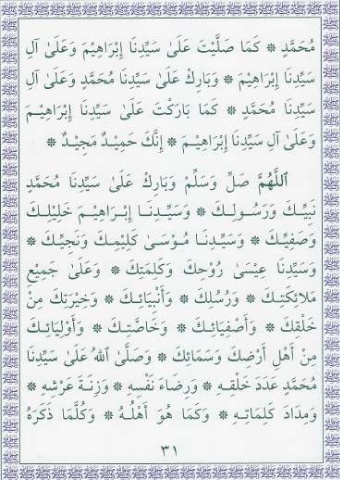 مُحَمَّدٍ ❁ كَمَا صَلَّيْتَ عَلَىٰ سَيِّدِنَا إِبْرَاهِيْمَ وَعَلَىٰ آلِ
سَيِّدِنَا إِبْرَاهِيْمَ ❁ وَبَارِكْ عَلَىٰ سَيِّدِنَا مُحَمَّدٍ وَعَلَىٰ آلِ
سَيِّدِنَا مُحَمَّدٍ ❁ كَمَا بَارَكْتَ عَلَىٰ سَيِّدِنَا إِبْرَاهِيْمَ
وَعَلَىٰ آلِ سَيِّدِنَا إِبْرَاهِيْمَ ❁ إِنَّكَ حَمِيْدٌ مَجِيْدٌ ❁
اَللّٰهُمَّ صَلِّ وَسَلِّمْ وَبَارِكْ عَلَىٰ سَيِّدِنَا مُحَمَّدٍ
نَبِيِّكَ وَرَسُولِكَ ❁ وَسَيِّدِنَا إِبْرَاهِيْمَ خَلِيْلِكَ
وَصَفِيِّكَ ❁ وَسَيِّدِنَا مُوْسَىٰ كَلِيْمِكَ وَنَجِيِّكَ ❁
وَسَيِّدِنَا عِيسَىٰ رُوْحِكَ وَكَلِمَتِكَ ❁ وَعَلَىٰ جَمِيْعِ
مَلَائِكَتِكَ ❁ وَرُسُلِكَ ❁ وَأَنْبِيَائِكَ ❁ وَخِيْرَتِكَ مِنْ
خَلْقِكَ ❁ وَأَصْفِيَائِكَ ❁ وَخَاصَّتِكَ ❁ وَأَوْلِيَائِكَ
مِنْ أَهْلِ أَرْضِكَ وَسَمَائِكَ ❁ وَصَلَّىٰ اللهُ عَلَىٰ سَيِّدِنَا
مُحَمَّدٍ عَدَدَ خَلْقِهِ ❁ وَرِضَاءَ نَفْسِهِ ❁ وَزِنَةَ عَرْشِهِ ❁
وَمِدَادَ كَلِمَاتِهِ ❁ وَكَمَا هُوَ أَهْلُهُ ❁ وَكُلَّمَا ذَكَرَهُ
٣١